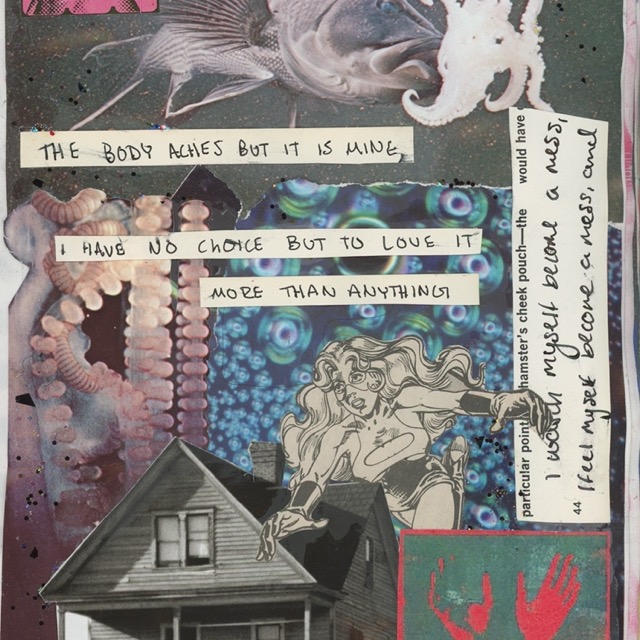 THE BODY ACHES BUT IT IS MINE,
I HAVE NO CHOICE BUT TO LOVE IT
MORE THAN ANYTHING
particular point hamster's cheek pouch—the would have
I watch myself become a mess,
I feel myself become a mess, and
44